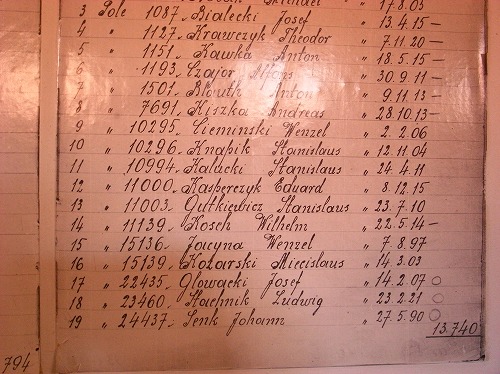 " 17.8.03
3 Pole 1087. Bialecki Josef " 13.4.15 —
4 " 1127. Krawczyk Theodor " 7.11.20 —
5 " 1151. Kawka Anton " 18.5.15 —
6 " 1193. Czajor Alfons " 30.9.11 —
7 " 1501. Anton " 9.11.13 —
8 " 7691. Kiszka Andreas " 28.10.13 —
9 " 10295. Cieminski Wenzel " 2.2.06
10 " 10296. Knapik Stanislaus " 12.11.04
11 " 10994. Kalucki Stanislaus " 24.4.11
12 " 11000. Kasperczyk Eduard " 8.12.15
13 " 11003. Gutkiewicz Stanislaus " 23.7.10
14 " 11139. Kosch Wilhelm " 22.5.14 —
15 " 15136. Jacyna Wenzel " 7.8.97
16 " 15139. Kotarski Miecislaus " 14.3.03
17 " 22435. Glowacki Josef " 14.2.07 O
18 " 23460. Stachnik Ludwig " 23.2.21 O
19 " 24437. Senk Johann " 27.5.90 O
13.740
794